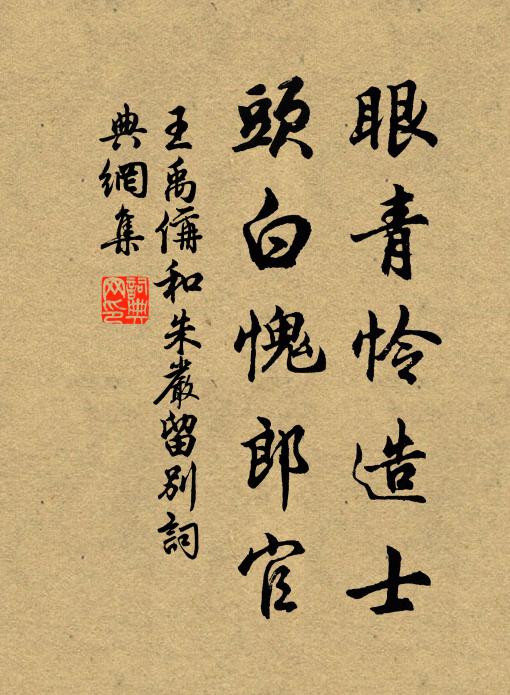 眼青怜造士
頭白愧郎官
王禹偁和朱嚴留別詞
典網集
詞典网印